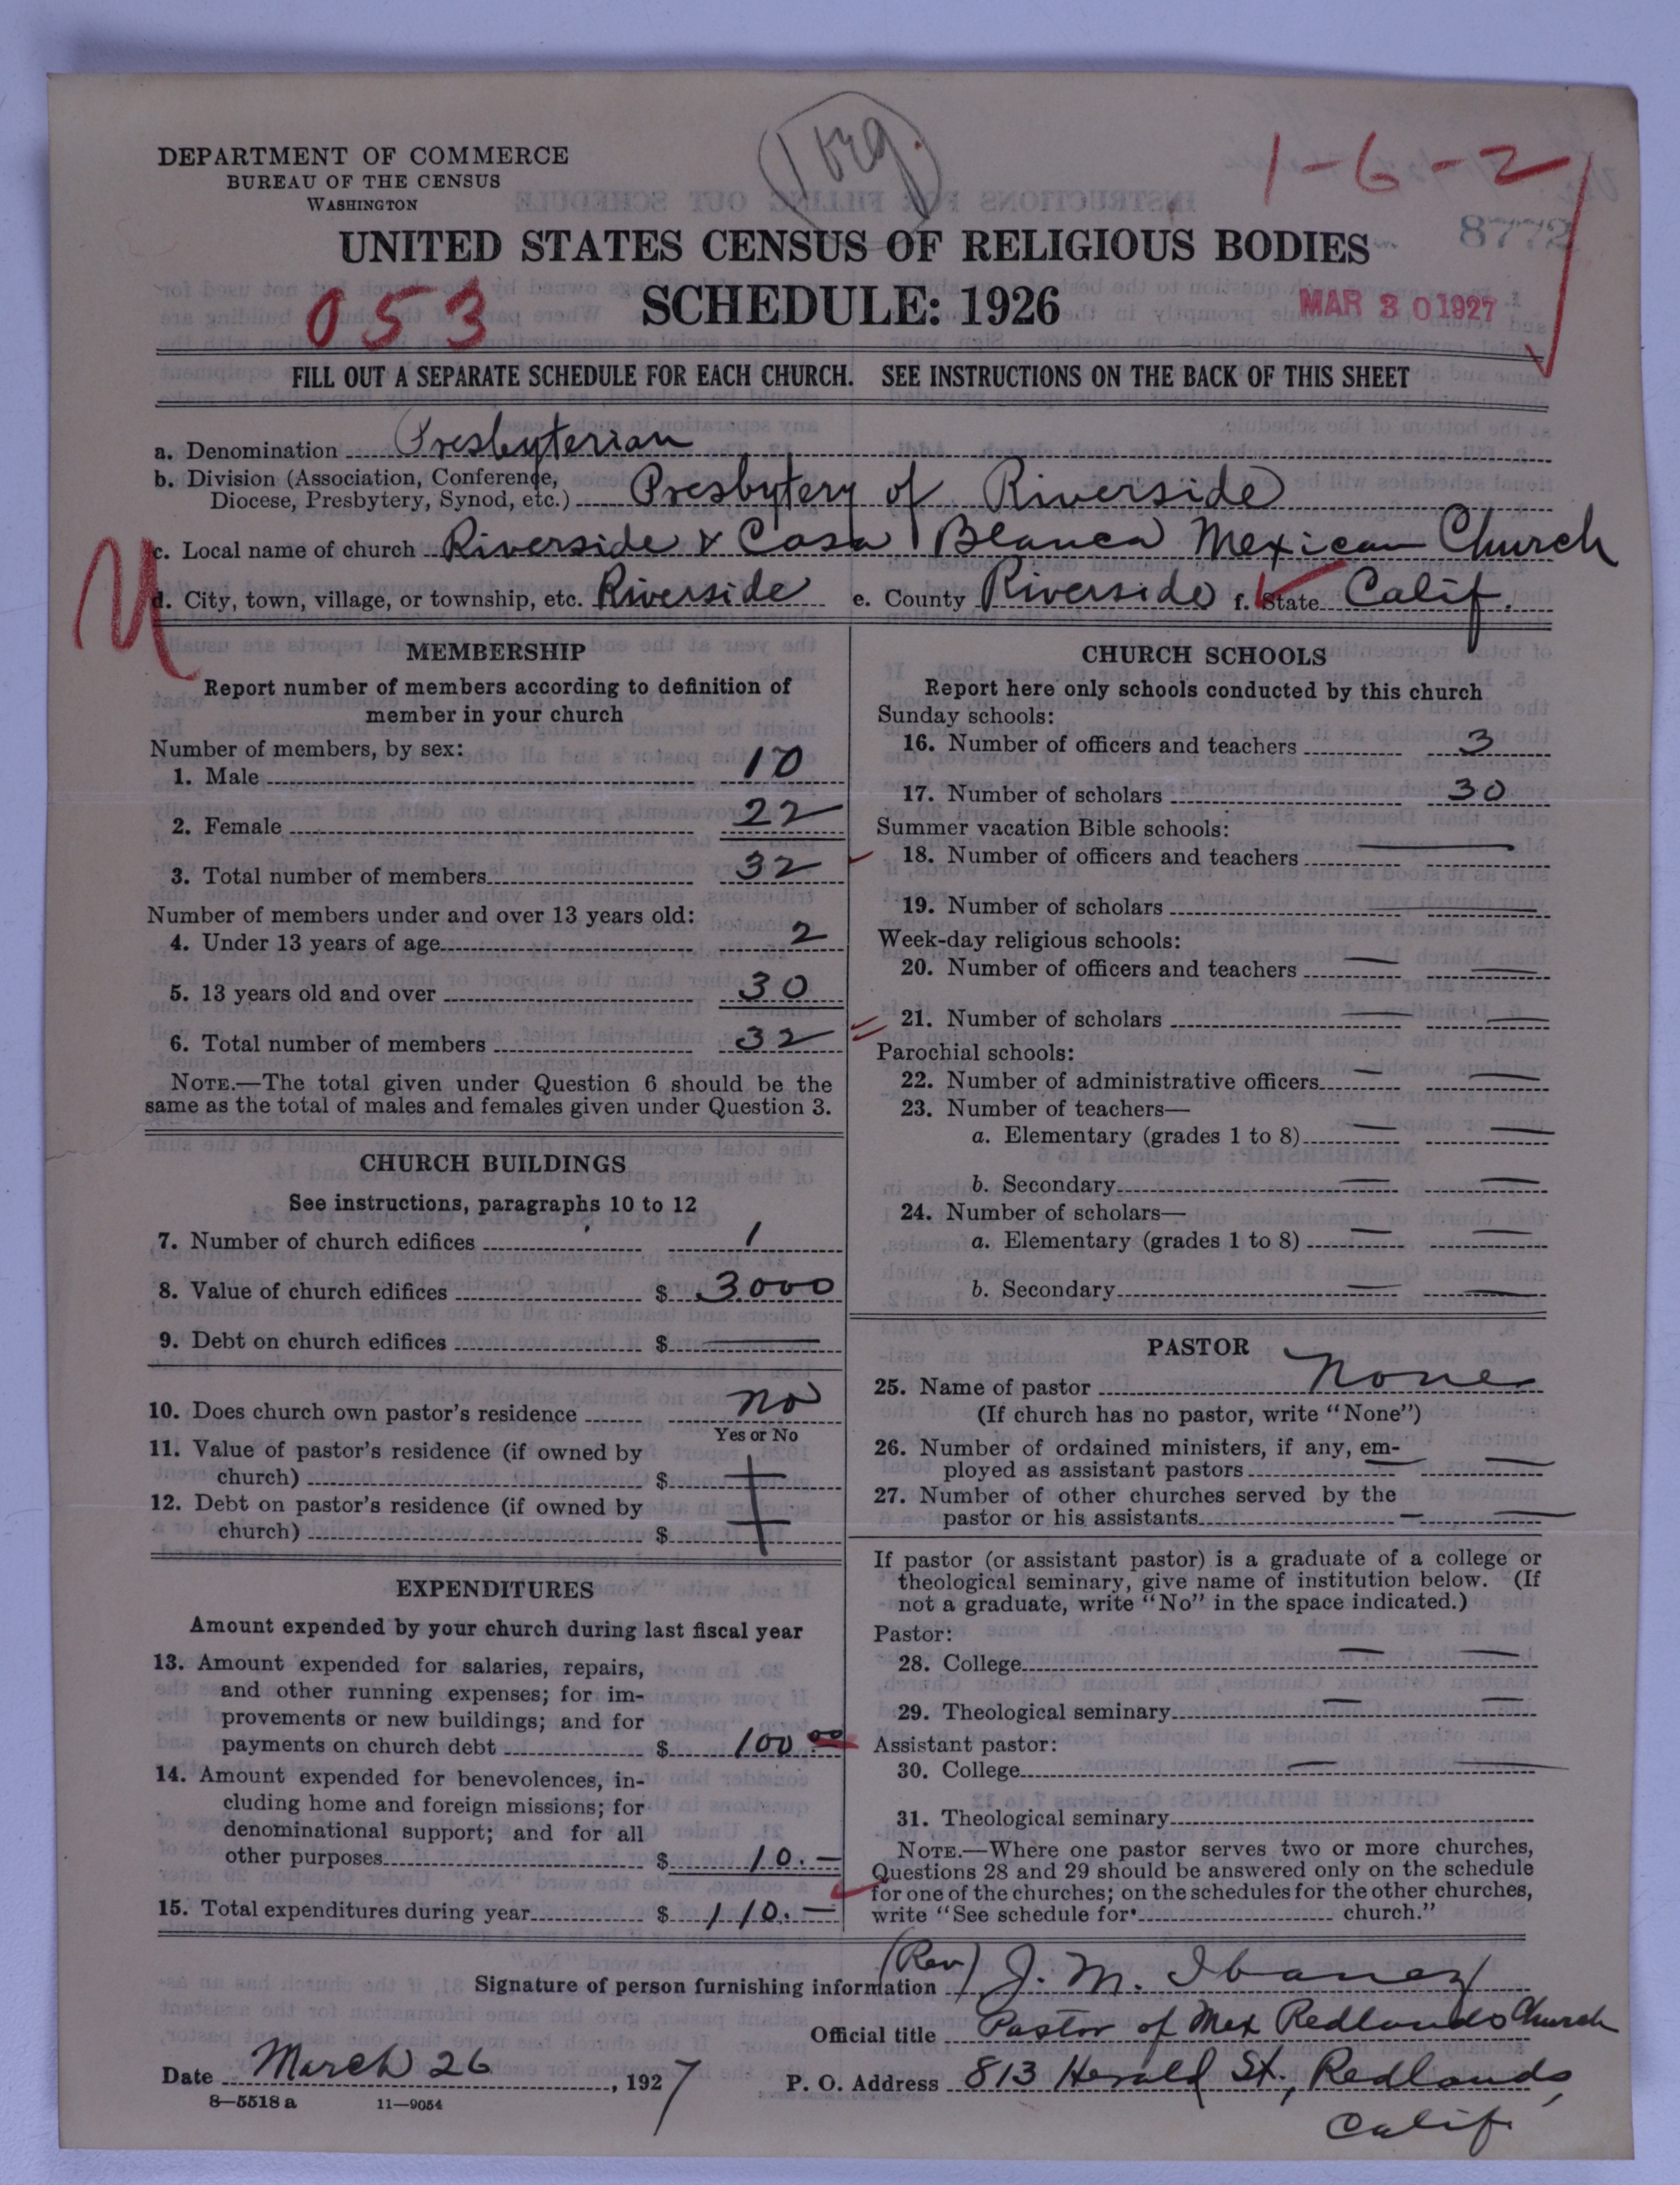 (1 org.)
1-6-2
DEPARTMENT OF COMMERCE
BUREAU OF THE CENSUS
WASHINGTON
8772
UNITED STATES CENSUS OF RELIGIOUS BODIES
053
SCHEDULE: 1926
MAR 30 1927
FILL OUT A SEPARATE SCHEDULE FOR EACH CHURCH. SEE INSTRUCTIONS ON THE BACK OF THIS SHEET
a. Denomination Presbyterian
b. Division (Association, Conference,
Diocese, Presbytery, Synod, etc.) Presbytery of Riverside
c. Local name of church Riverside & Casa Blanca Mexican Church
d. City, town, village, or township, etc. Riverside e. County Riverside f. State Calif.
U
MEMBERSHIP
Report number of members according to definition of
member in your church
Number of members, by sex:
1. Male 10
2. Female 22
3. Total number of members 32
Number of members under and over 13 years old:
4. Under 13 years of age 2
5. 13 years old and over 30
6. Total number of members 32
NOTE.—The total given under Question 6 should be the
same as the total of males and females given under Question 3.
CHURCH BUILDINGS
See instructions, paragraphs 10 to 12
7. Number of church edifices 1
8. Value of church edifices $ 3000
9. Debt on church edifices $ —
10. Does church own pastor's residence no
Yes or No
11. Value of pastor's residence (if owned by
church) $ —
12. Debt on pastor's residence (if owned by
church) $ —
EXPENDITURES
Amount expended by your church during last fiscal year
13. Amount expended for salaries, repairs,
and other running expenses; for im-
provements or new buildings; and for
payments on church debt $ 100.00
14. Amount expended for benevolences, in-
cluding home and foreign missions; for
denominational support; and for all
other purposes $ 10.—
15. Total expenditures during year $ 110.—
CHURCH SCHOOLS
Report here only schools conducted by this church
Sunday schools:
16. Number of officers and teachers 3
17. Number of scholars 30
Summer vacation Bible schools:
18. Number of officers and teachers —
19. Number of scholars —
Week-day religious schools:
20. Number of officers and teachers —
21. Number of scholars —
Parochial schools:
22. Number of administrative officers —
23. Number of teachers—
a. Elementary (grades 1 to 8) —
b. Secondary —
24. Number of scholars—
a. Elementary (grades 1 to 8) —
b. Secondary —
PASTOR
25. Name of pastor None
(If church has no pastor, write "None")
26. Number of ordained ministers, if any, em-
ployed as assistant pastors —
27. Number of other churches served by the
pastor or his assistants —
If pastor (or assistant pastor) is a graduate of a college or
theological seminary, give name of institution below. (If
not a graduate, write "No" in the space indicated.)
Pastor:
28. College —
29. Theological seminary —
Assistant pastor:
30. College —
31. Theological seminary
NOTE.—Where one pastor serves two or more churches,
Questions 28 and 29 should be answered only on the schedule
for one of the churches; on the schedules for the other churches,
write "See schedule for church."
Signature of person furnishing information (Rev) J. M. Ibanez
Official title Pastor of Mex Redlands Church
Date March 26, 1927 P. O. Address 813 Herald St., Redlands,
Calif.
8—5518 a 11—9054